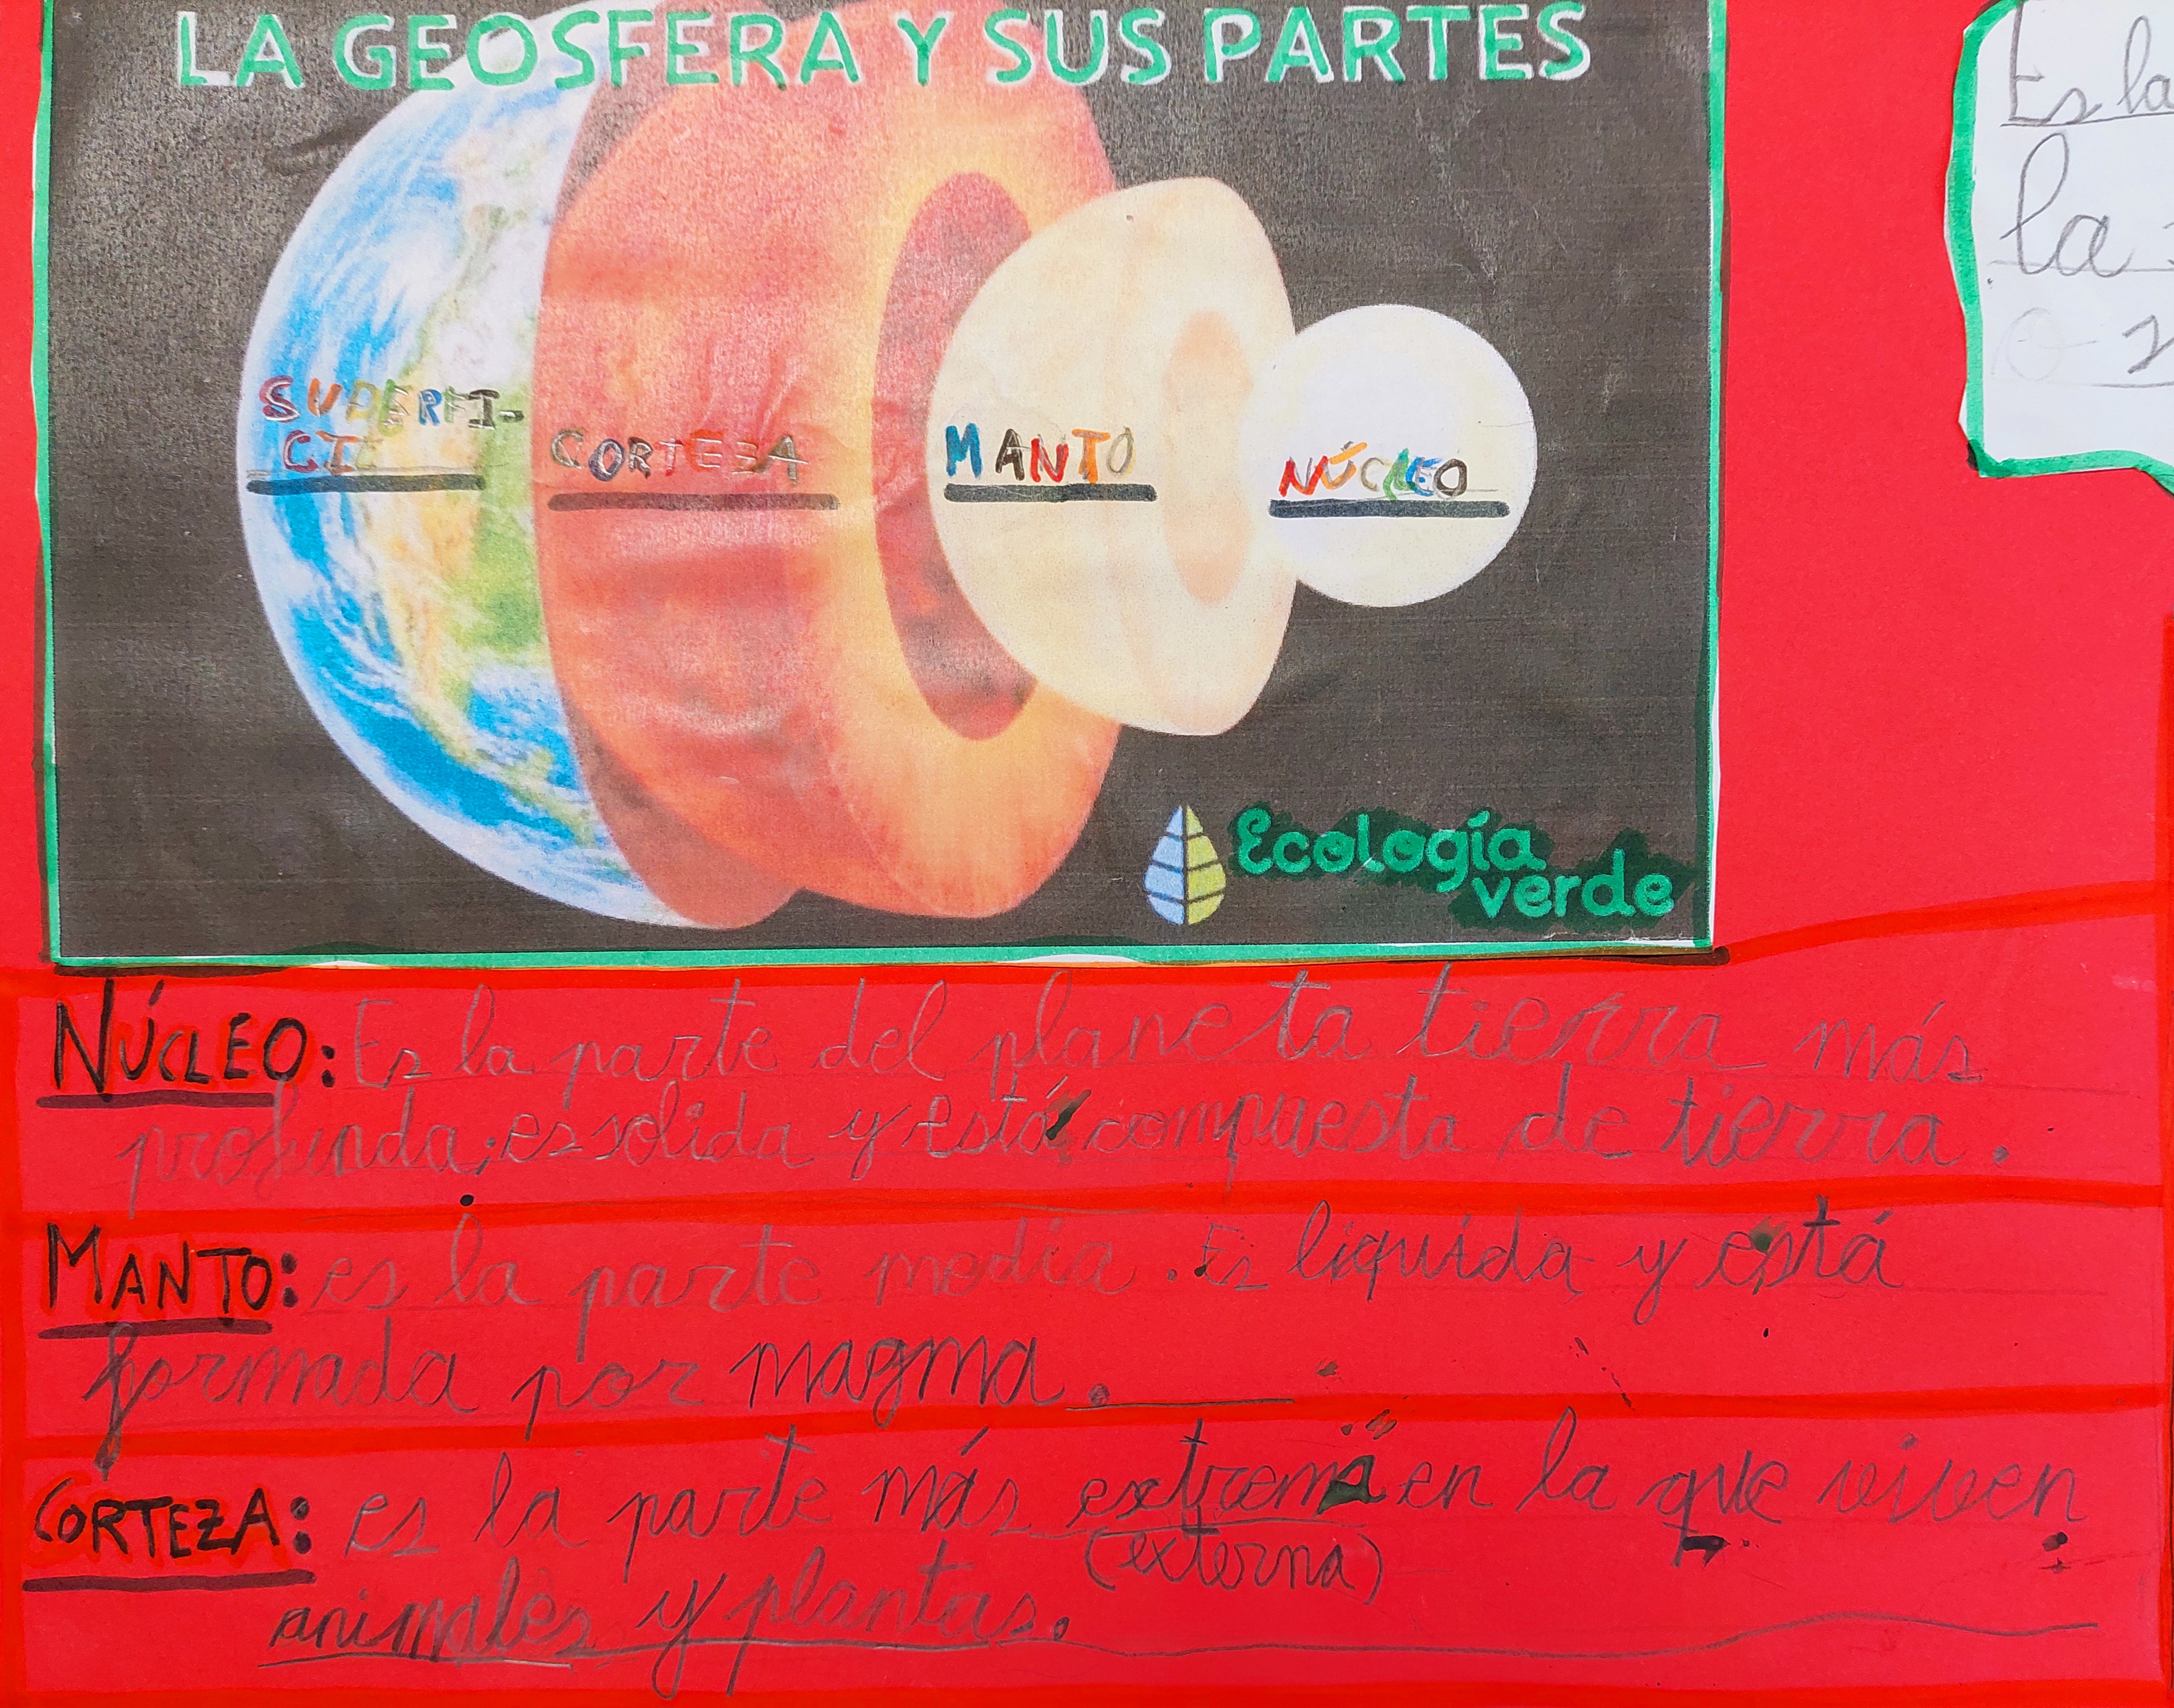 LA GEOSFERA Y SUS PARTES
SUPERFI-
CIE
CORTEZA
MANTO
NÚCLEO
Ecología
verde
Es la
la
NÚCLEO: Es la parte del planeta tierra más
profunda, es solida y está compuesta de tierra.
MANTO: es la parte media. Es líquida y está
formada por magma.
CORTEZA: es la parte más extrema en la que viven
(externa)
animales y plantas.